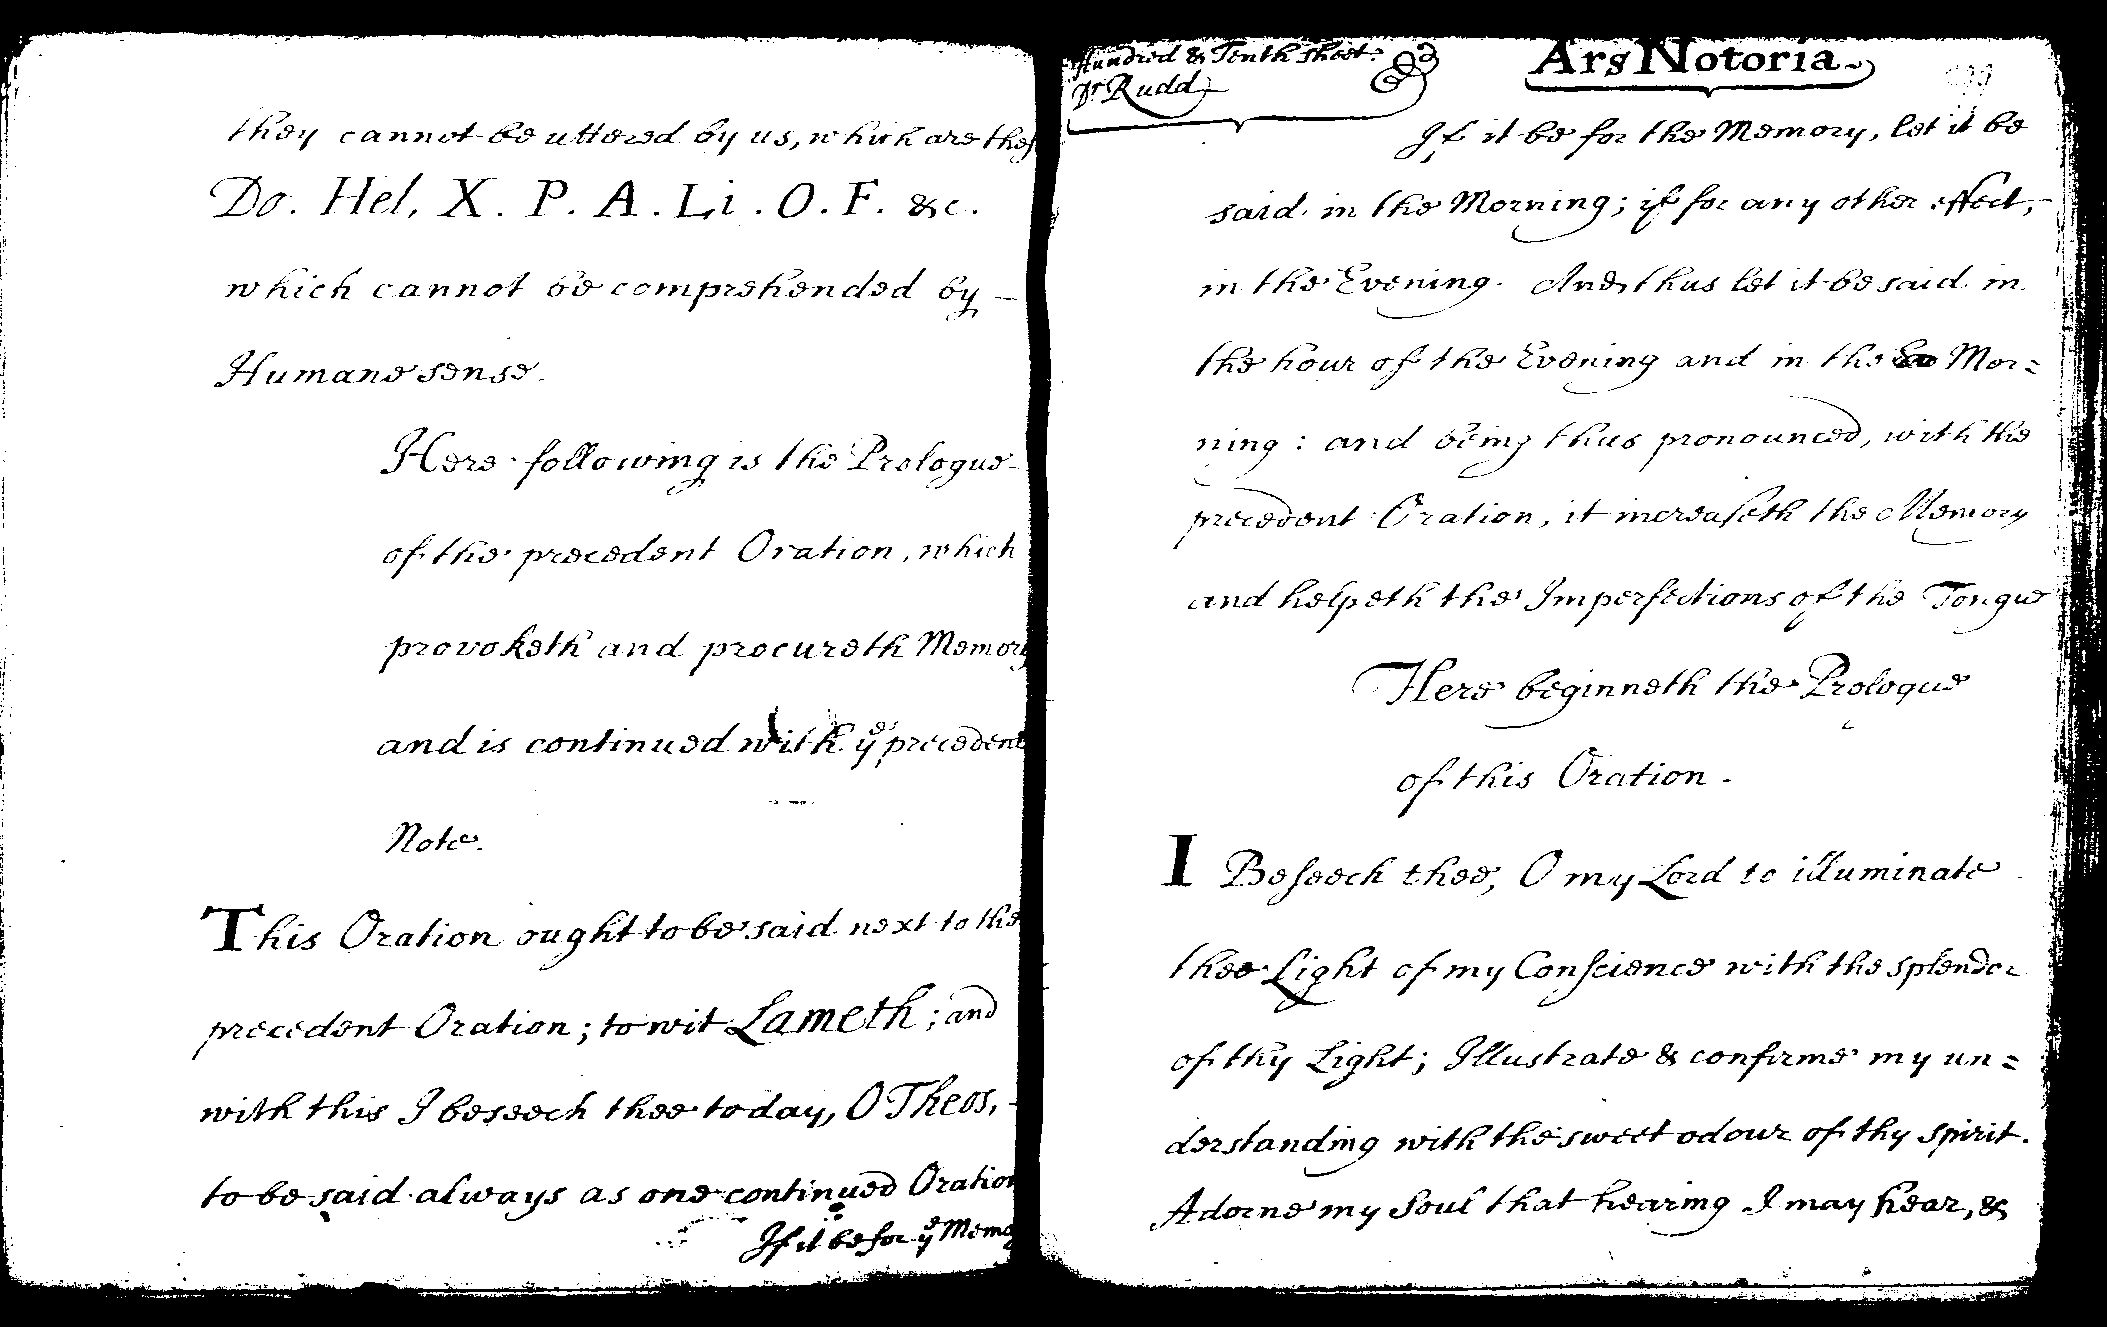 they cannot be uttered by us, which are thes
Do. Hel. X. P. A. Li. O. F. &c.
which cannot be comprehended by –
Humane sense.
Here following is the Prologue
of the precedent Oration, which
provoketh and procureth Memory
and is continued with yᵉ precedent
Note.
This Oration ought to be said next to the
precedent Oration; to wit Lameth; and
with this I beseech thee to day, O Theos, -
to be said always as one continued Oration
If it be for yᵉ Memo
Hundred & Tenth sheet.
Dʳ Rudd
Ars Notoria
If it be for the Memory, let it be
said in the Morning; if for any other effect, -
in the Evening. And thus let it be said in
the hour of the Evening and in the Mor=
ning: and being thus pronounced, with the
precedent Oration, it increaseth the Memory
and helpeth the Imperfections of the Tongue
Here beginneth the Prologue
of this Oration.
I Beseech thee, O my Lord to illuminate
thee Light of my Conscience with the splendor
of thy Light; Illustrate & confirme my un=
derstanding with the sweet odour of thy spirit.
Adorne my Soul that hearing I may hear, &